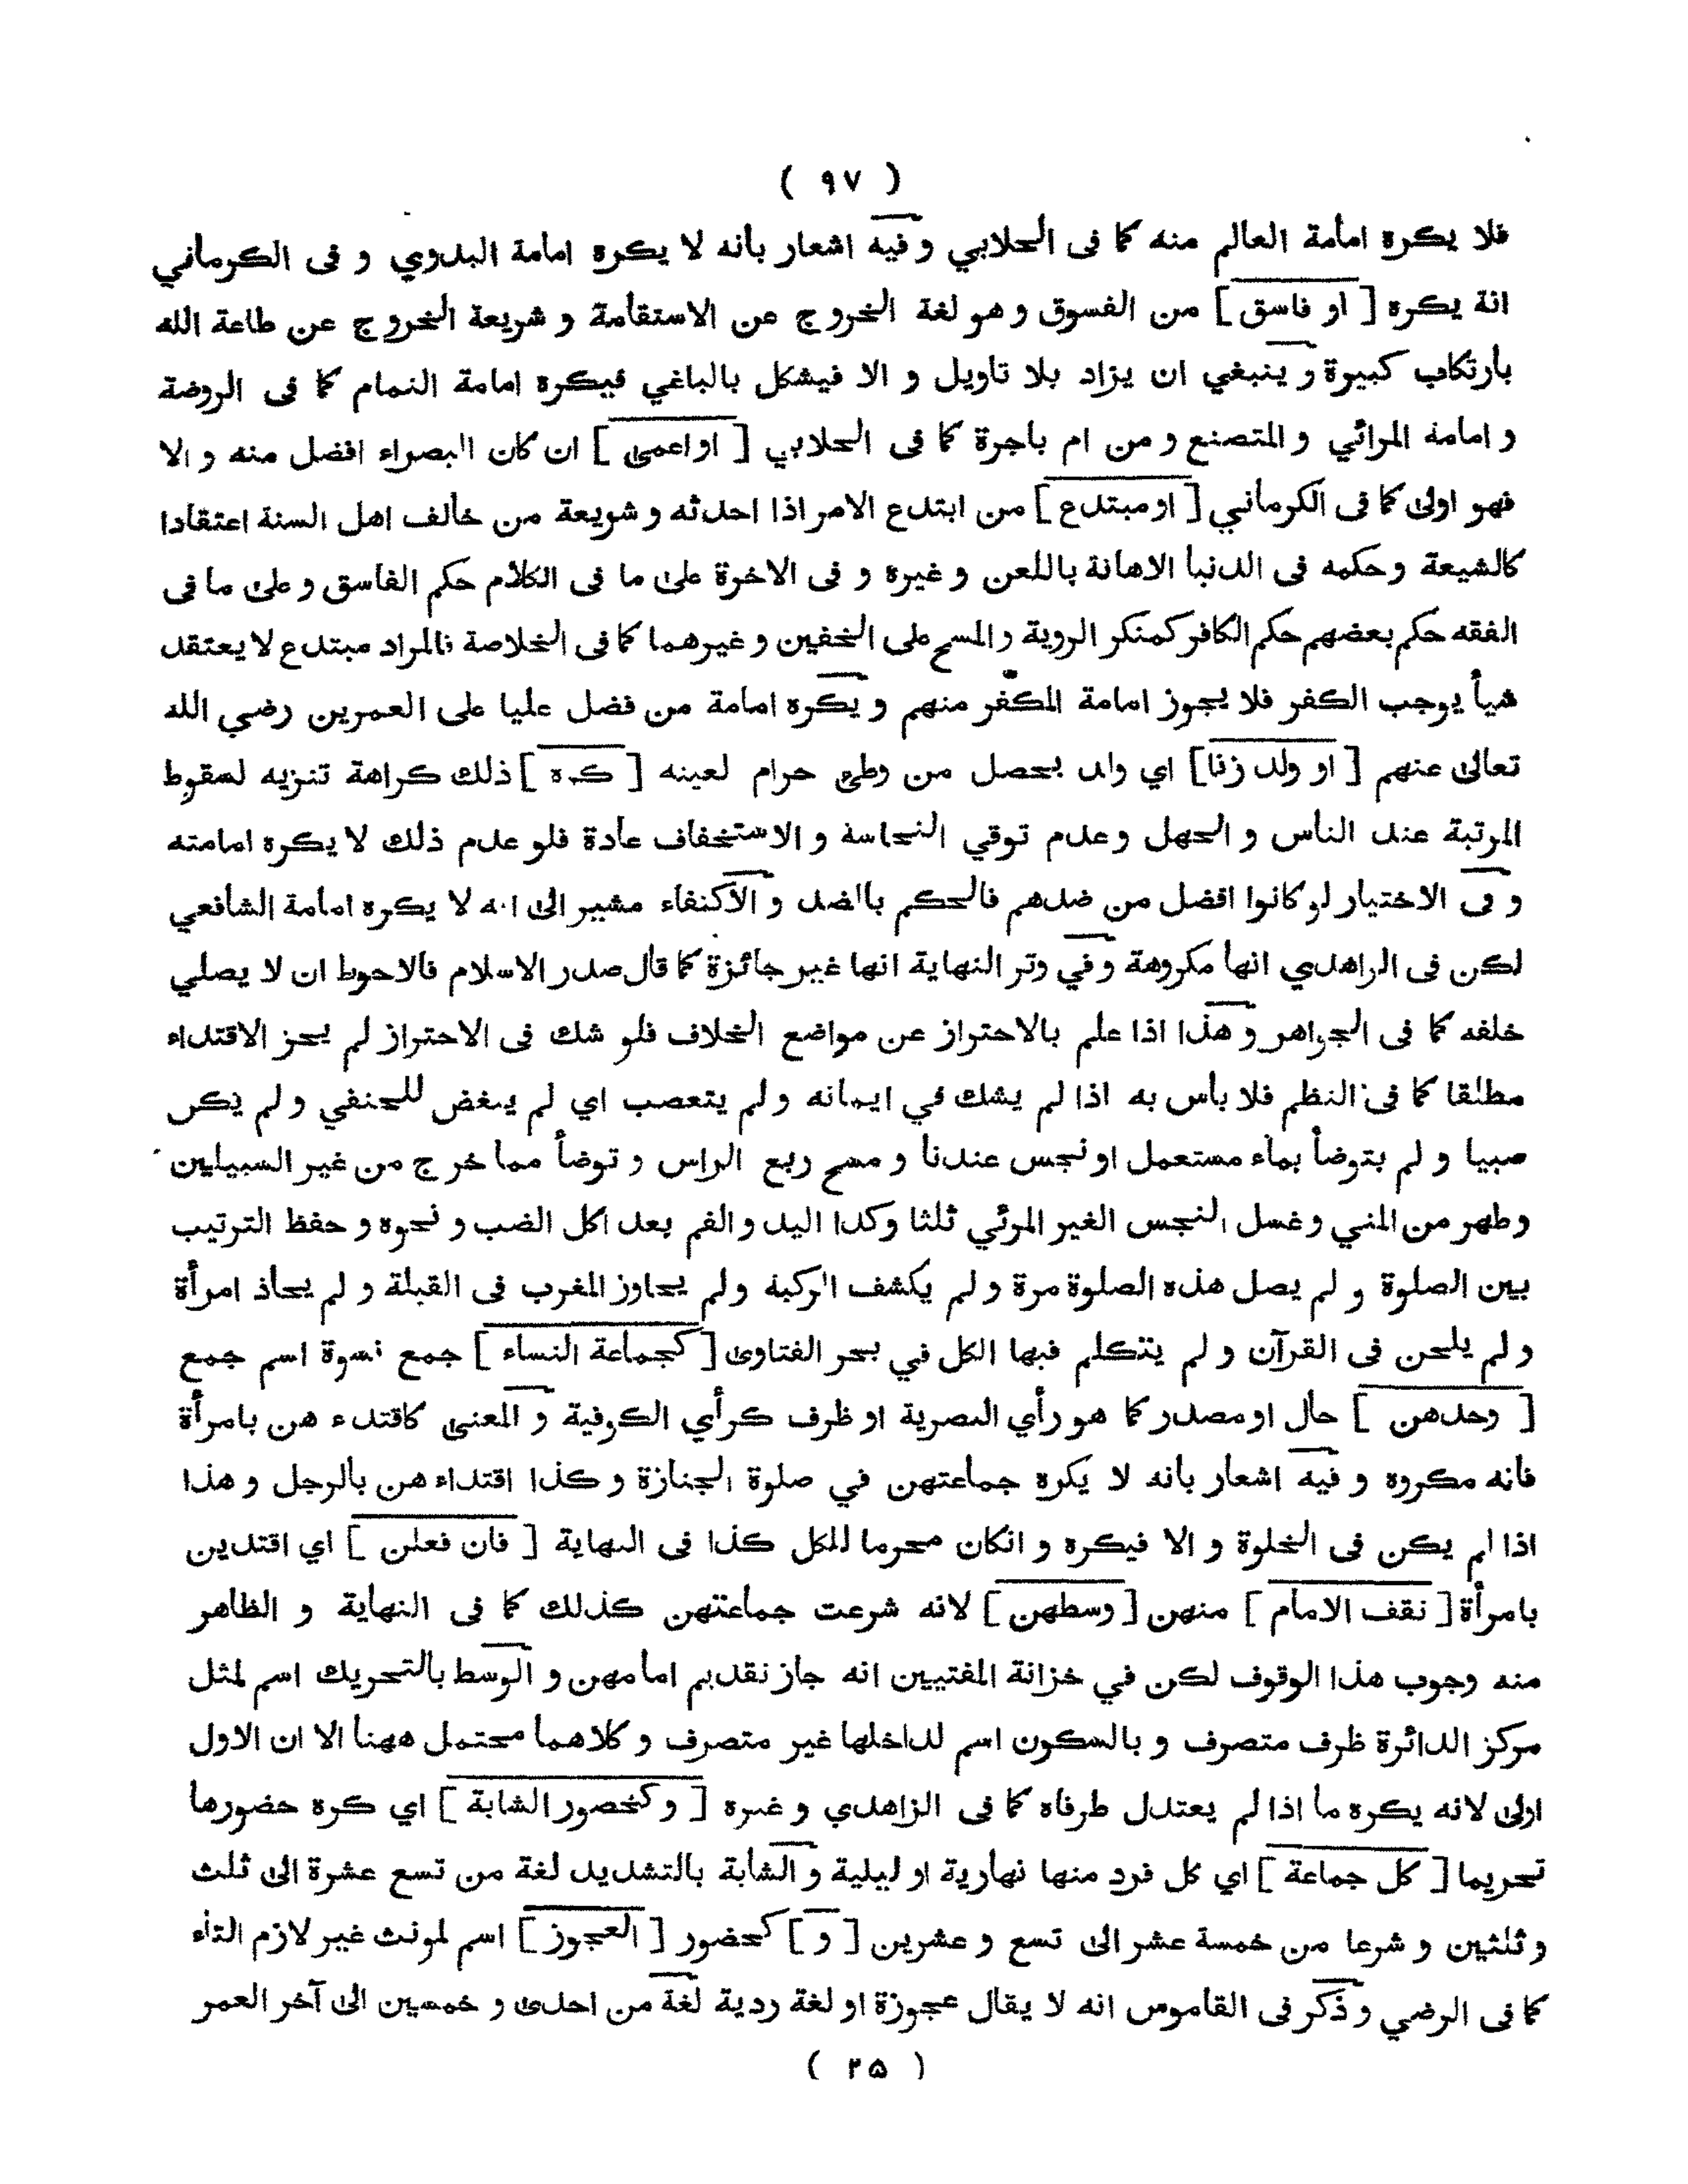 ( ٩٧ )
فلا يكره امامة العالم منه كما فى الجلابي و فيه اشعار بأنه لا يكره امامة البدوي و فى الكرماني
انه يكره [ او فاسق ] من الفسوق و هو لغة الخروج عن الاستقامة و شريعة الخروج عن طاعة الله
بارتكاب كبيرة و ينبغي ان يزاد بلا تاويل و الا فيشكل بالباغي فيكره امامة النمام كما فى الروضة
و امامة المرائي و المتصنع و من ام باجرة كما فى الجلابي [ او اعمى ] ان كان البصراء افضل منه و الا
فهو اولى كما فى الكرماني [ او مبتدع ] من ابتدع الامر اذا احدثه و شريعة من خالف اهل السنة اعتقادا
كالشيعة و حكمه فى الدنيا الاهانة باللعن و غيره و فى الاخرة على ما فى الكلام حكم الفاسق و على ما فى
الفقه حكم بعضهم حكم الكافر كمنكر الروية و المسح على الخفين و غيرهما كما فى الخلاصة فالمراد مبتدع لا يعتقد
شيأ يوجب الكفر فلا يجوز امامة المكفر منهم و يكره امامة من فضل عليا على العمرين رضي الله
تعالى عنهم [ او ولد زنا ] اي ولد يحصل من وطئ حرام لعينه [ كره ] ذلك كراهة تنزيه لسقوط
المرتبة عند الناس و الجهل و عدم توقي النجاسة و الاستخفاف عادة فلو عدم ذلك لا يكره امامته
و فى الاختيار لو كانوا افضل من ضدهم فالحكم بالضد و الاكتفاء مشير الى انه لا يكره امامة الشافعي
لكن فى الزاهدي انها مكروهة و في وتر النهاية انها غير جائزة كما قال صدر الاسلام فالاحوط ان لا يصلي
خلفه كما فى الجواهر و هذا اذا علم بالاحتراز عن مواضع الخلاف فلو شك فى الاحتراز لم يجز الاقتداء
مطلقا كما فى النظم فلا بأس به اذا لم يشك في ايمانه و لم يتعصب اي لم يبغض للحنفي و لم يكن
صبيا و لم يتوضأ بماء مستعمل او نجس عندنا و مسح ربع الراس و توضأ مما خرج من غير السبيلين
وطهر من المني و غسل النجس الغير المرئي ثلثا وكذا اليد و الفم بعد اكل الضب و نحوه و حفظ الترتيب
بين الصلوة و لم يصل هذه الصلوة مرة و لم يكشف الركبة و لم يجاوز المغرب فى القبلة و لم يحاذ امرأة
و لم يلحن فى القرآن و لم يتكلم فيها الكل في بحر الفتاوى [ كجماعة النساء ] جمع نسوة اسم جمع
[ وحدهن ] حال او مصدر كما هو رأي البصرية او ظرف كرأي الكوفية و المعنى كاقتداء هن بامرأة
فانه مكروه و فيه اشعار بأنه لا يكره جماعتهن في صلوة الجنازة و كذا اقتداء هن بالرجل و هذا
اذا لم يكن فى الخلوة و الا فيكره و انكان محرما للكل كذا فى النهاية [ فان فعلن ] اي اقتدين
بامرأة [ نقف الامام ] منهن [ وسطهن ] لانه شرعت جماعتهن كذلك كما فى النهاية و الظاهر
منه وجوب هذا الوقوف لكن في خزانة المفتيين انه جاز تقديم امامهن و الوسط بالتحريك اسم لمثل
مركز الدائرة ظرف متصرف و بالسكون اسم لداخلها غير متصرف و كلاهما محتمل ههنا الا ان الاول
اولى لانه يكره ما اذا لم يعتدل طرفاه كما فى الزاهدي و غيره [ و كحضور الشابة ] اي كره حضورها
تحريما [ كل جماعة ] اي كل فرد منها نهارية او ليلية و الشابة بالتشديد لغة من تسع عشرة الى ثلث
و ثلثين و شرعا من خمسة عشر الى تسع و عشرين [ و ] كحضور [ العجوز ] اسم لمونث غير لازم التاء
كما فى الرضي و ذكر فى القاموس انه لا يقال عجوزة او لغة ردية لغة من احدى و خمسين الى آخر العمر
( ٢٥ )